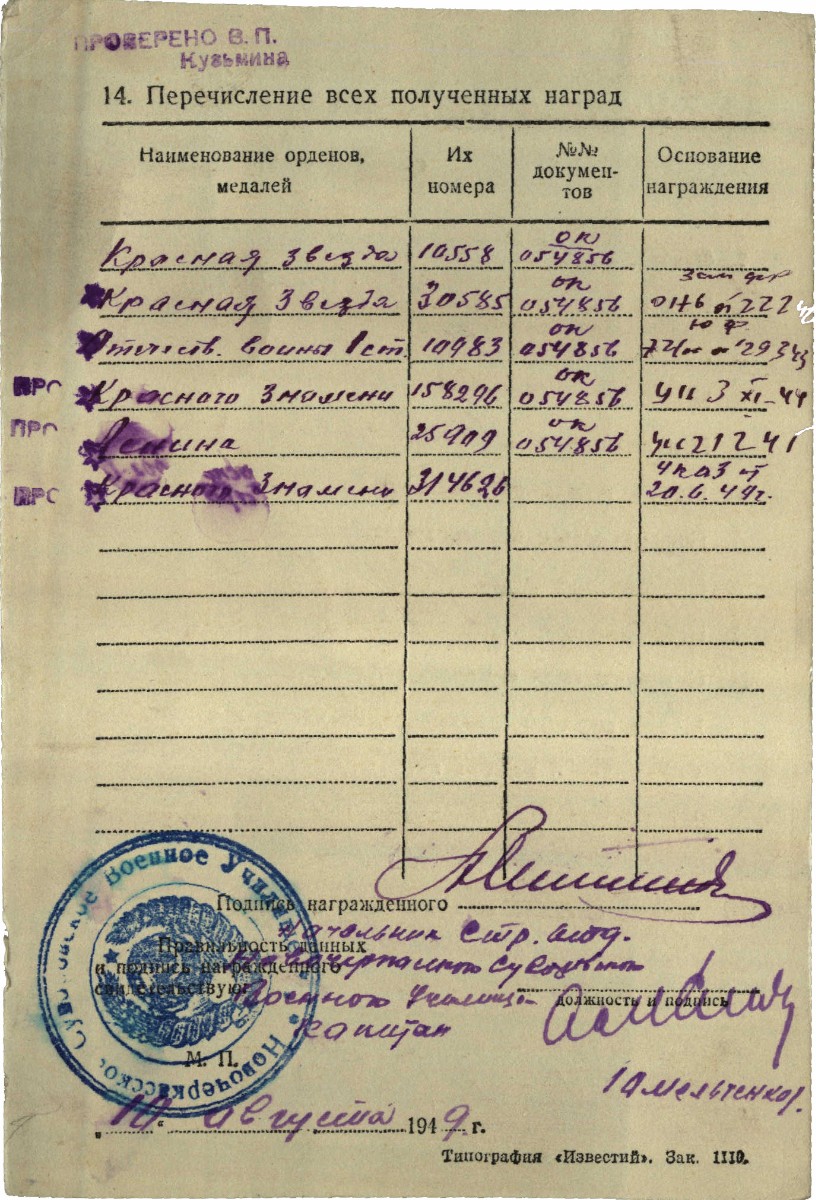 ПРОВЕРЕНО В. П.
Кузьмина
14. Перечисление всех полученных наград
Наименование орденов, медалей
Их номера
№№ докумен-тов
Основание награждения
Красная Звезда 10558 ОК 054856
Красная Звезда 30585 ОК 054856
Отечеств. войны 1 ст. 10983 ОК 054856
ПРО Красного Знамени 158296 ОК 054856 ук 3 XI-44
ПРО Ленина 25909 ОК 054856 ук 21 2 41
ПРО Красного Знамени 314626 указ от 20.6.49г.
Подпись награжденного
Правильность данных
и подпись награжденного
свидетельствую:
Начальник Стр. отд.
Новочеркасского Суворовского
Военного Училища
капитан
должность и подпись
М. П.
Новочеркасское Суворовское Военное Училище
"10" августа 1949 г.
Типография «Известий». Зак. 1110.